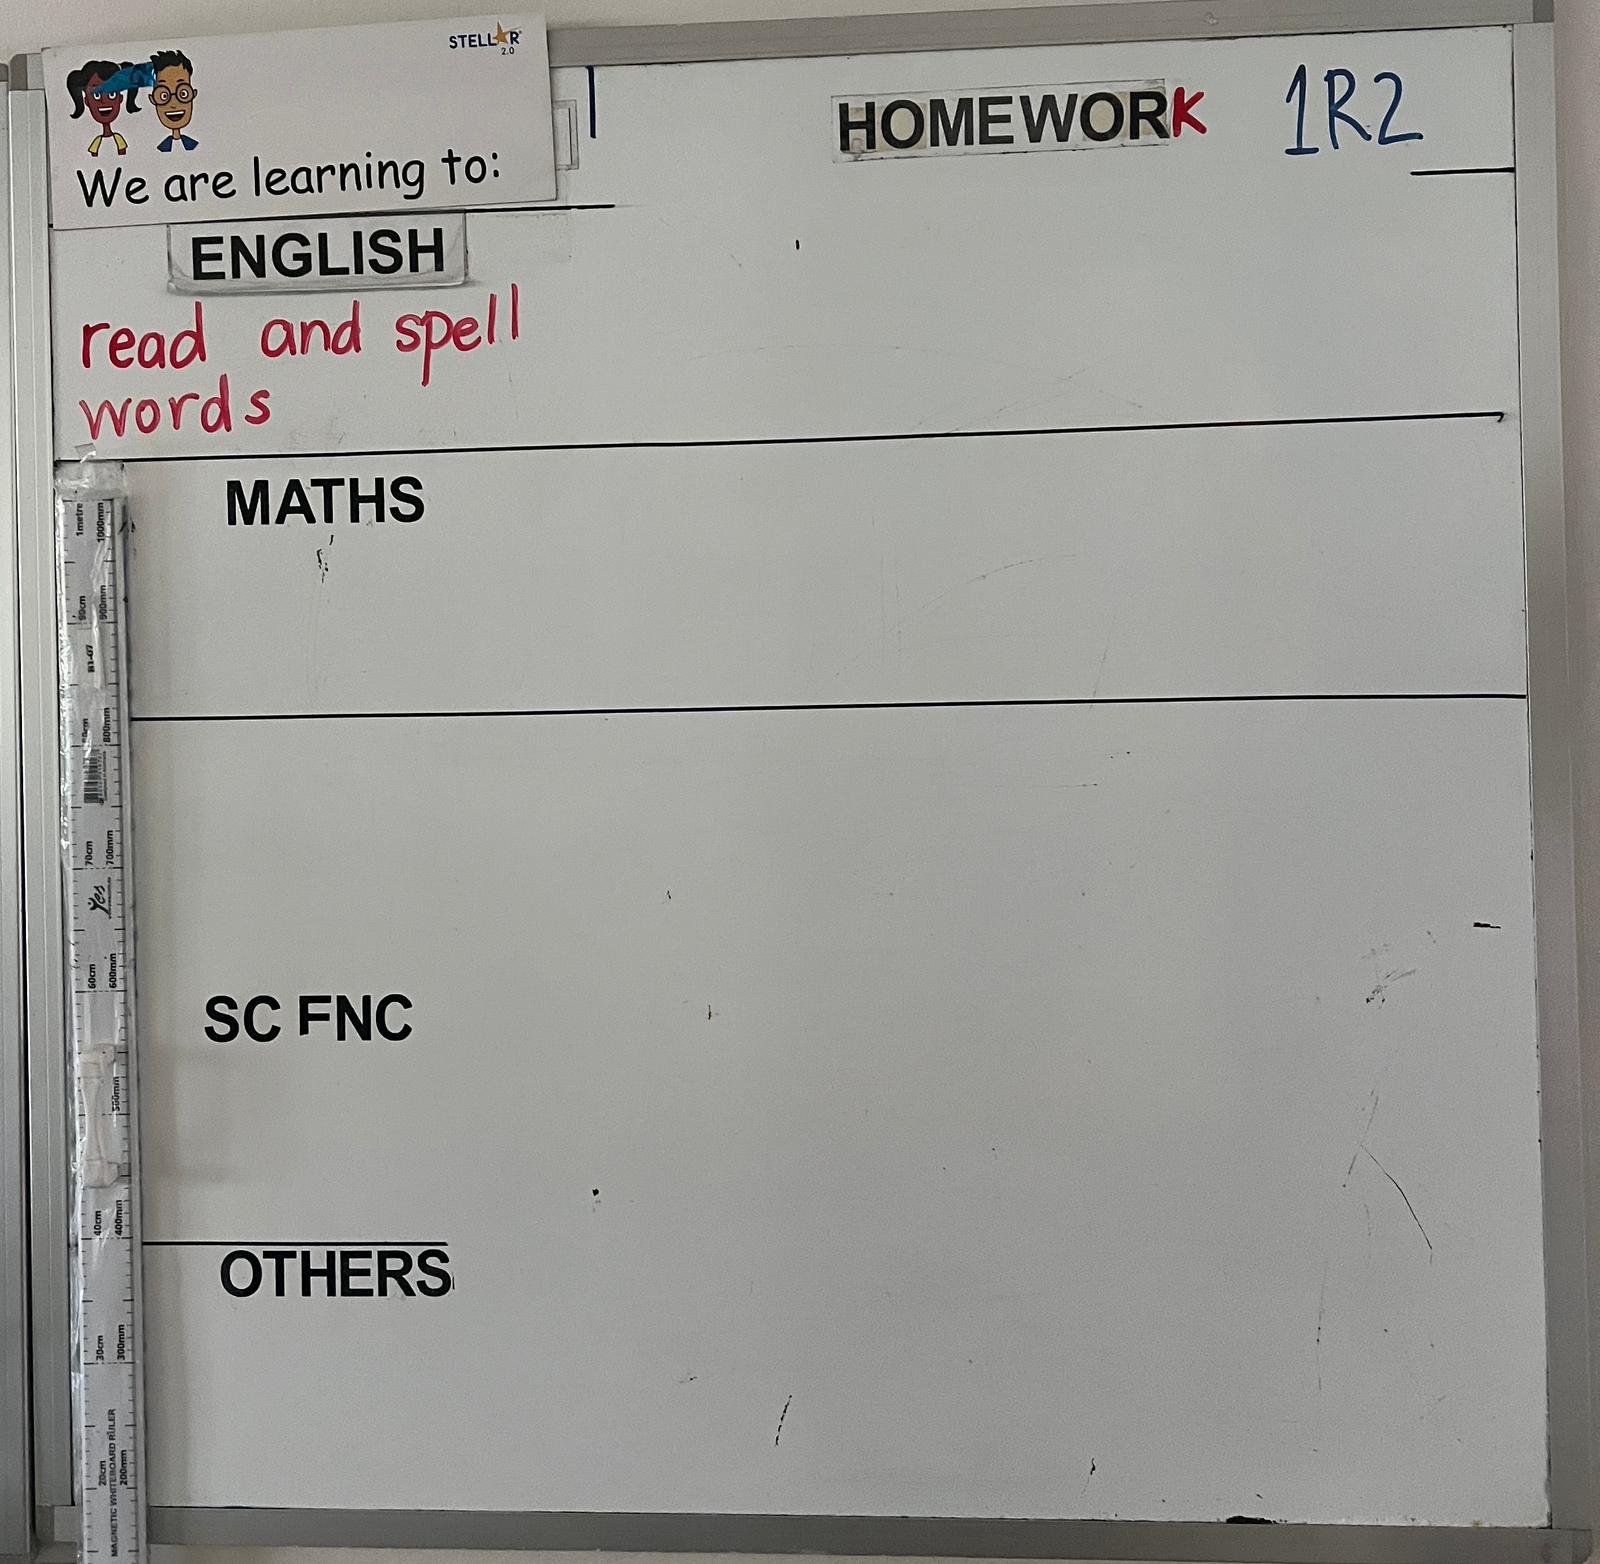 STELLAR 2.0
We are learning to:
HOMEWORK 1R2
ENGLISH
read and spell
words
MATHS
SC FNC
OTHERS
1metre 1000mm
90cm 900mm
B1-07
800mm
70cm 700mm
Yes
60cm 600mm
500mm
40cm 400mm
30cm 300mm
20cm 200mm
MAGNETIC WHITEBOARD RULER